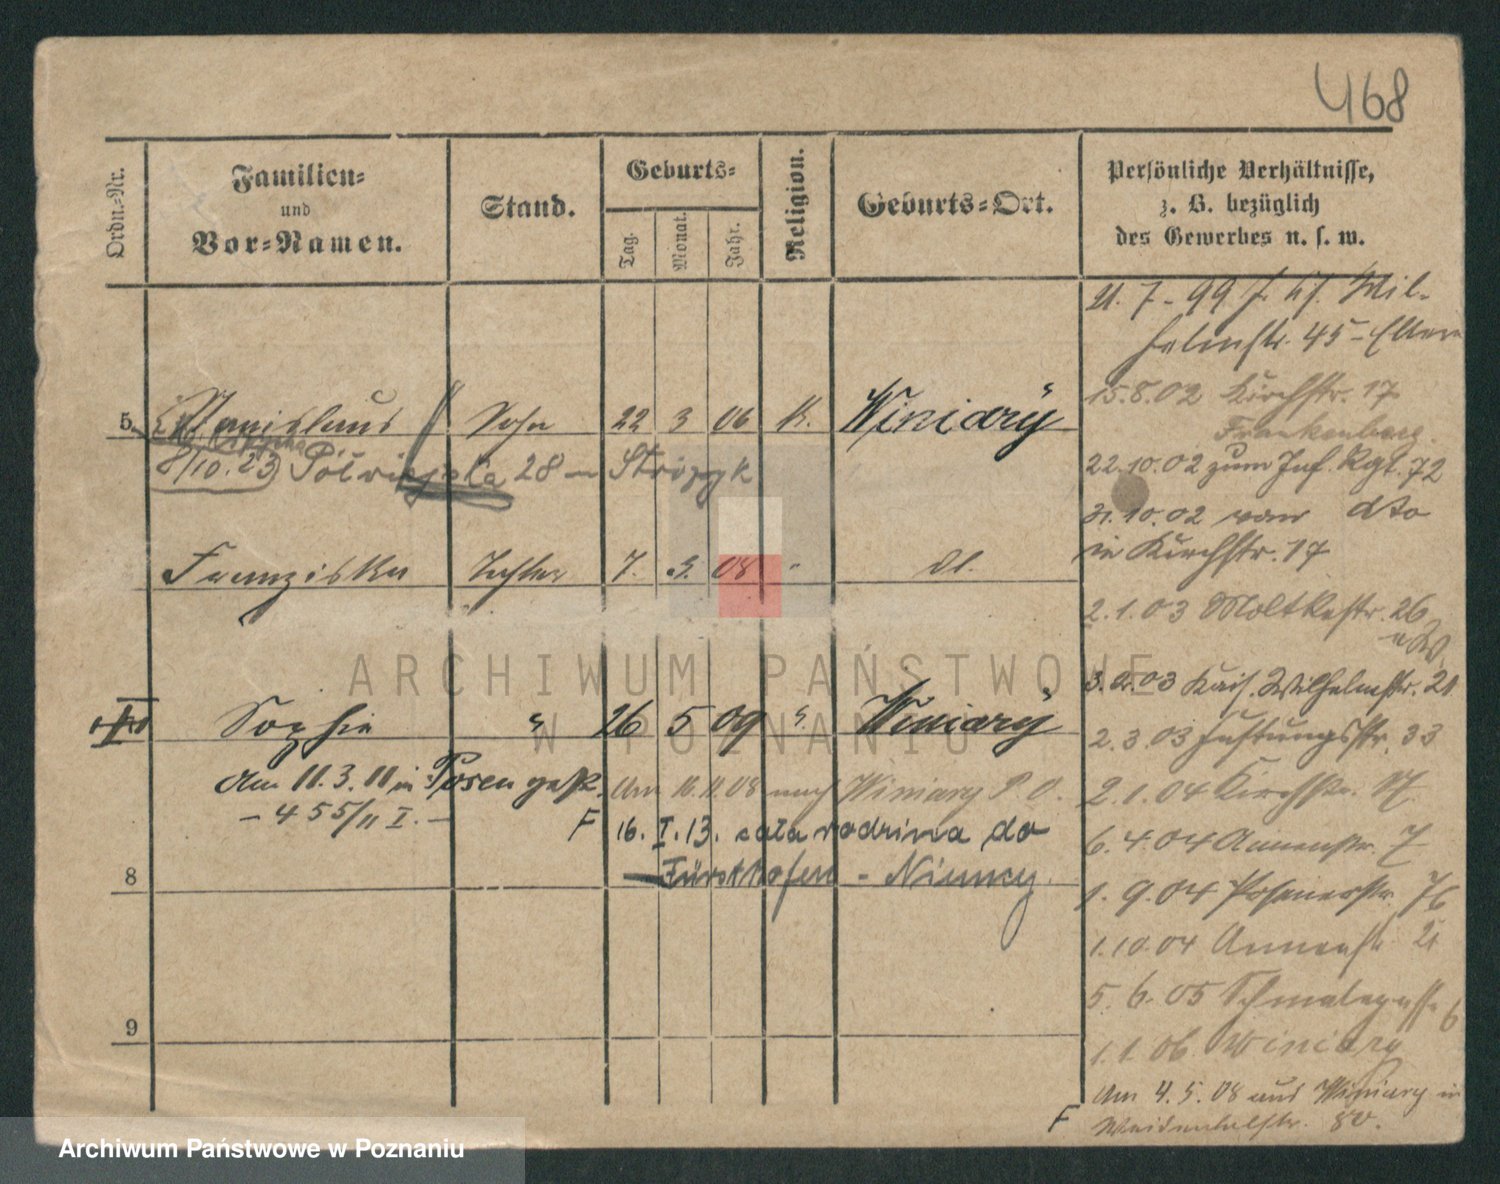 468
Ordn.-Nr.
Familien-
und
Vor-Namen.
Stand.
Geburts-
Tag.
Monat.
Jahr.
Religion.
Geburts-Ort.
Persönliche Verhältnisse,
z. B. bezüglich
des Gewerbes u. s. w.
21. 7 - 99
Wil-
helmstr. 45 - Eltern
15.8.02 Kirchstr. 17
Frankenberg.
22.10.02 zum Inf. Rgt. 72
31.10.02 von dto
in Kirchstr. 17
2.1.03 Moltkestr. 26
03 Kais. Wilhelmstr. 21
2.3.03 33
2.1.04 Kirchstr. 17
6.4.04 Annenstr. 7
1.9.04 Posenerstr. 76
1.10.04 Annenstr. 21
5.6.05 Schmalegasse 6
1.1.06 Winiary
Am 4.5.08 aus Winiary in
F 80.
5. Stanislaus Sohn 22 3 06 K. Winiary
8/10.23 Półwiejska 28 - Stróżyk
Franziska Tochter 7. 3. 08 " dt.
Sophie " 26 5 09 " Winiary
Am 11.3.11 in Posen gest.
- 455/11 I. -
Am 16.11.08 nach Winiary P. O.
F 16. I. 13. cała rodzina do
Fürstkhofen - Niemcy.
8
9
ARCHIWUM PAŃSTWOWE
W POZNANIU
Archiwum Państwowe w Poznaniu